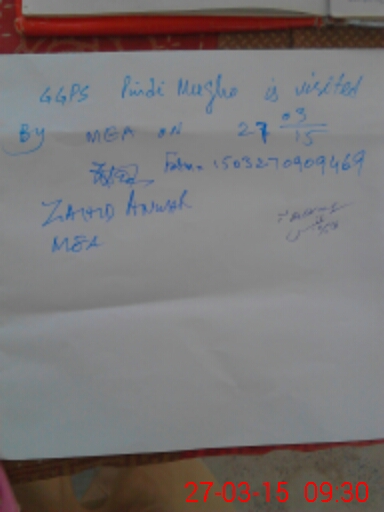 GGPS Pindi Mugho is visited
By MEA on 27 03/15
Form. 1503270909469
ZAHID ANWAR
MEA
27-03-15 09:30